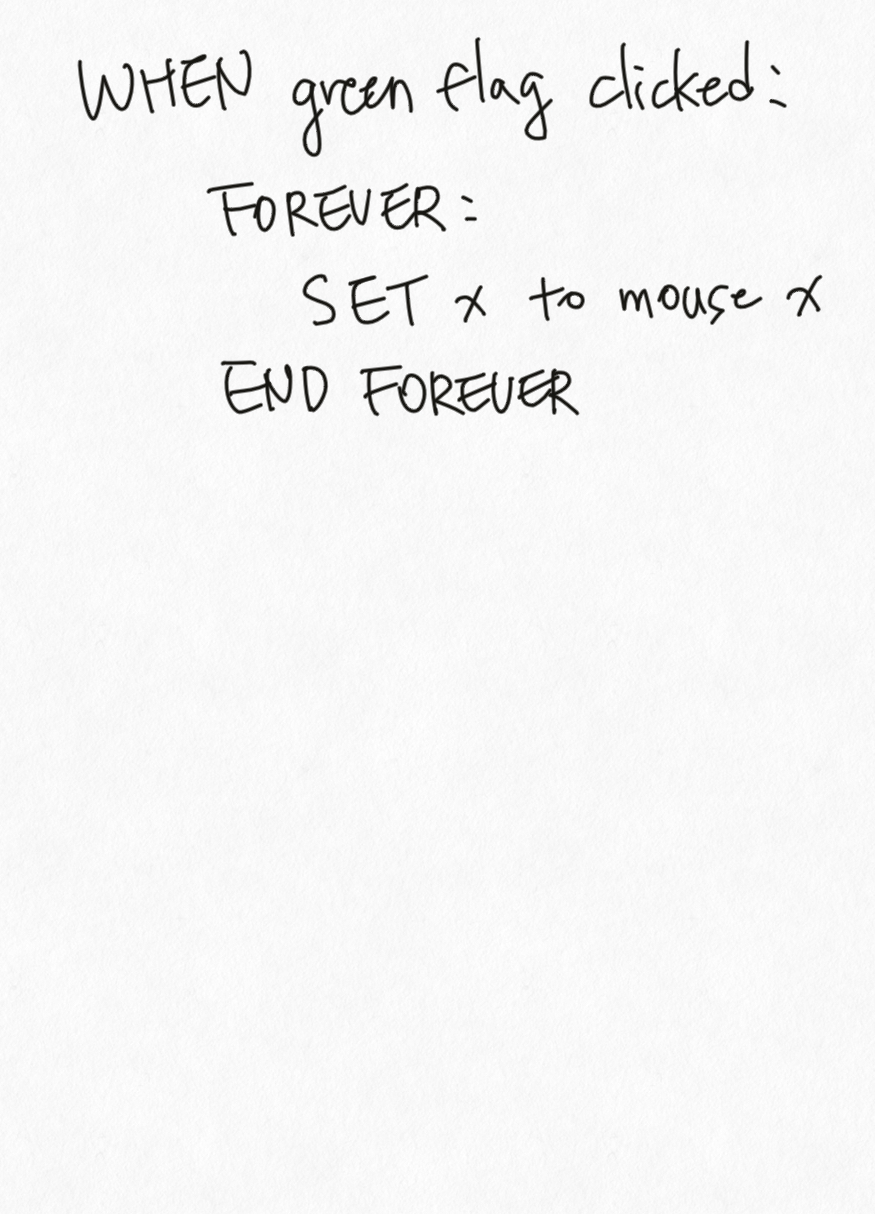 WHEN green flag clicked:
FOREVER:
SET x to mouse x
END FOREVER